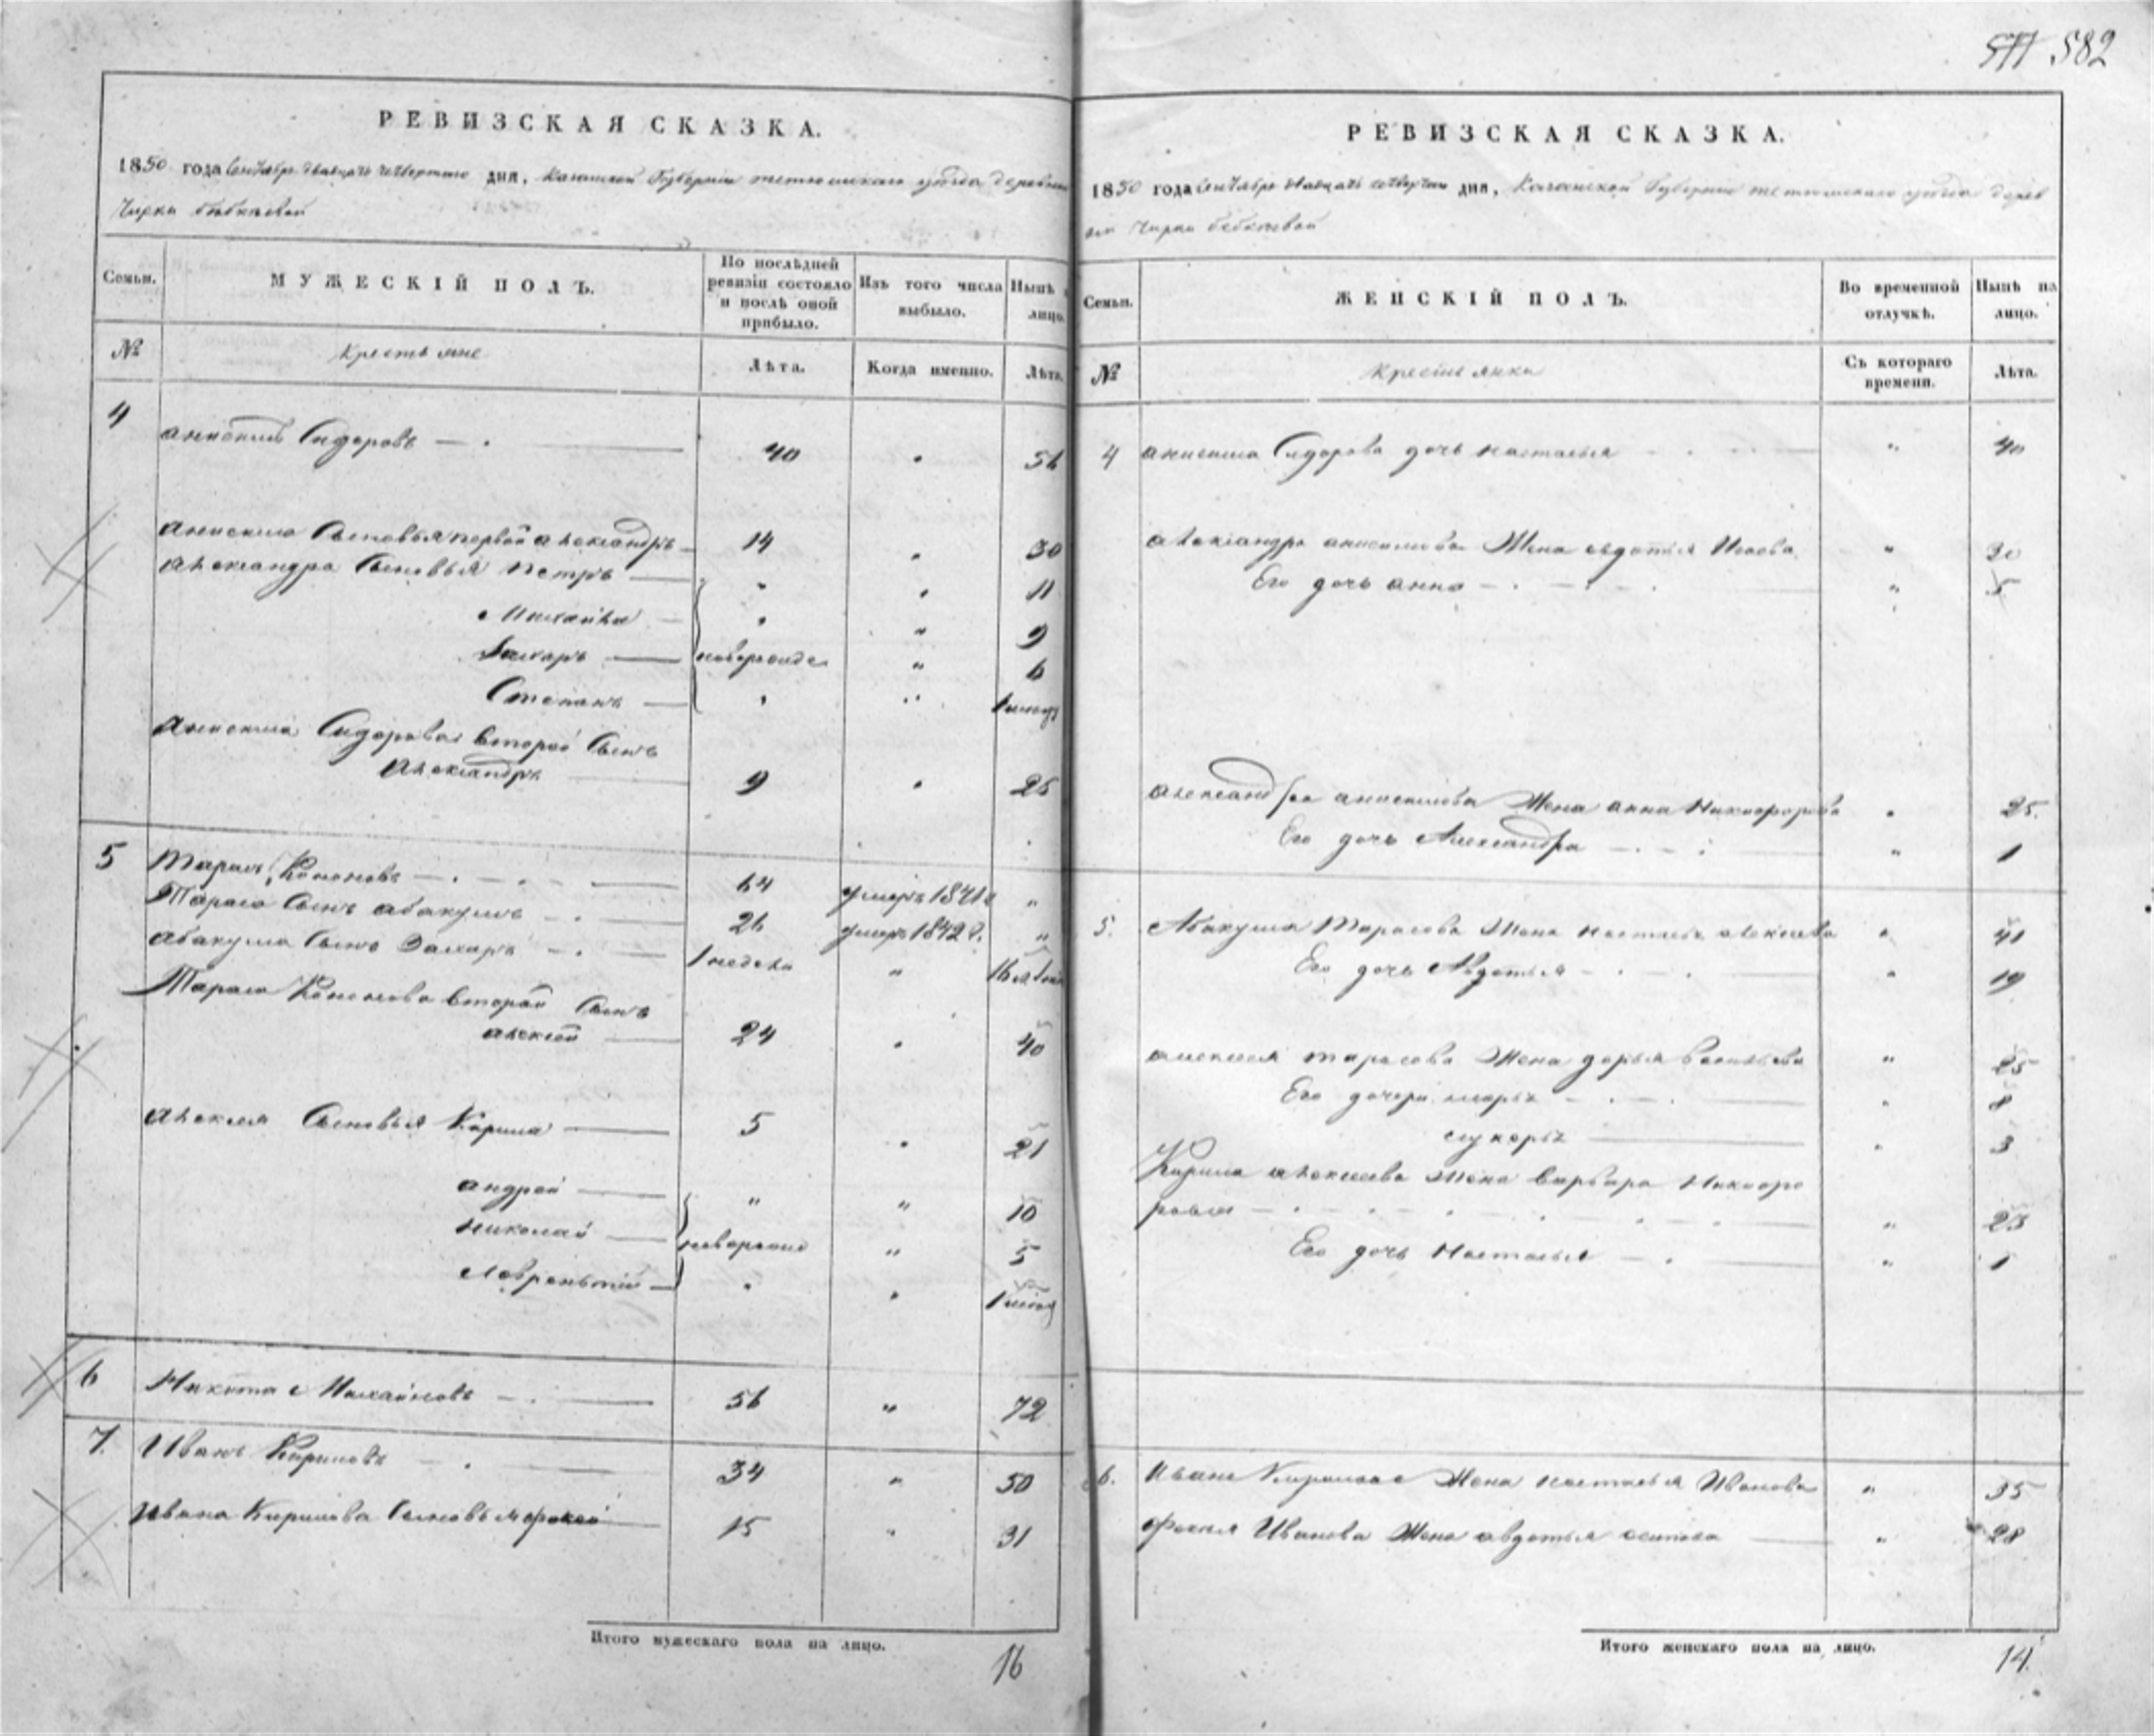 577 582
РЕВИЗСКАЯ СКАЗКА.
1850 года Сентября двадцать четвертаго дня, Казанской Губерніи тетюшскаго уѣзда деревни
Чирки бебкѣевой
Семьи. МУЖЕСКІЙ ПОЛЪ. По послѣдней ревизіи состояло и послѣ оной прибыло. Изъ того числа выбыло. Нынѣ лицо.
№ Крестьяне Лѣта. Когда именно. Лѣта.
4 анисимъ Сидоровъ 40 " 56
анисима Сыновья первой александръ 14 " 30
александра Сыновья петръ " " 11
Михайла " " 9
Захаръ новорожде " 6
Степанъ " " 1
анисима Сидорова второй Сынъ
александръ 9 " 25
5 Тарасъ Кононовъ 64 умеръ 1841 г "
Тараса Сынъ абакумъ 26 умеръ 1842 г. "
абакума Сынъ Захаръ 1 недели " 16
Тараса Кононова второй Сынъ
алексей 24 " 40
алексея Сыновья Кирила 5 " 21
андрей " " 10
николай новорожде " 5
Лаврентий " " 1
6 Никита Михайловъ 56 " 72
7. Иванъ Кириловъ 34 " 50
Ивана Кирилова Сыновья фокей 15 " 31
Итого мужескаго пола на лицо. 16
РЕВИЗСКАЯ СКАЗКА.
1850 года Сентября двадцать четвертаго дня, Казанской Губерніи тетюшскаго уѣзда дерев
ни Чирки бебкѣевой
Семьи. ЖЕНСКІЙ ПОЛЪ. Во временной отлучкѣ. Нынѣ на лицо.
№ Крестьянки Съ котораго времени. Лѣта.
4 анисима Сидорова дочь настасья " 40
александра анисимова Жена авдотья Исаева " 30
Его дочь анна " 5
александра анисимова Жена анна Никифорова " 25.
Его дочь Александра " 1
5. Абакума Тарасова Жена настасья алексеева " 41
Его дочь Авдотья " 19
алексея тарасова Жена дарья Васильева " 25
Его дочери марья " 8
лукерья " 3
Кирила алексеева Жена варвара Никифо
рова " 23
Его дочь Настасья " 1
6. Ивана Кирилова Жена настасья Иванова " 35
Фокея Иванова Жена авдотья осипова " 28
Итого женскаго пола на лицо. 14.